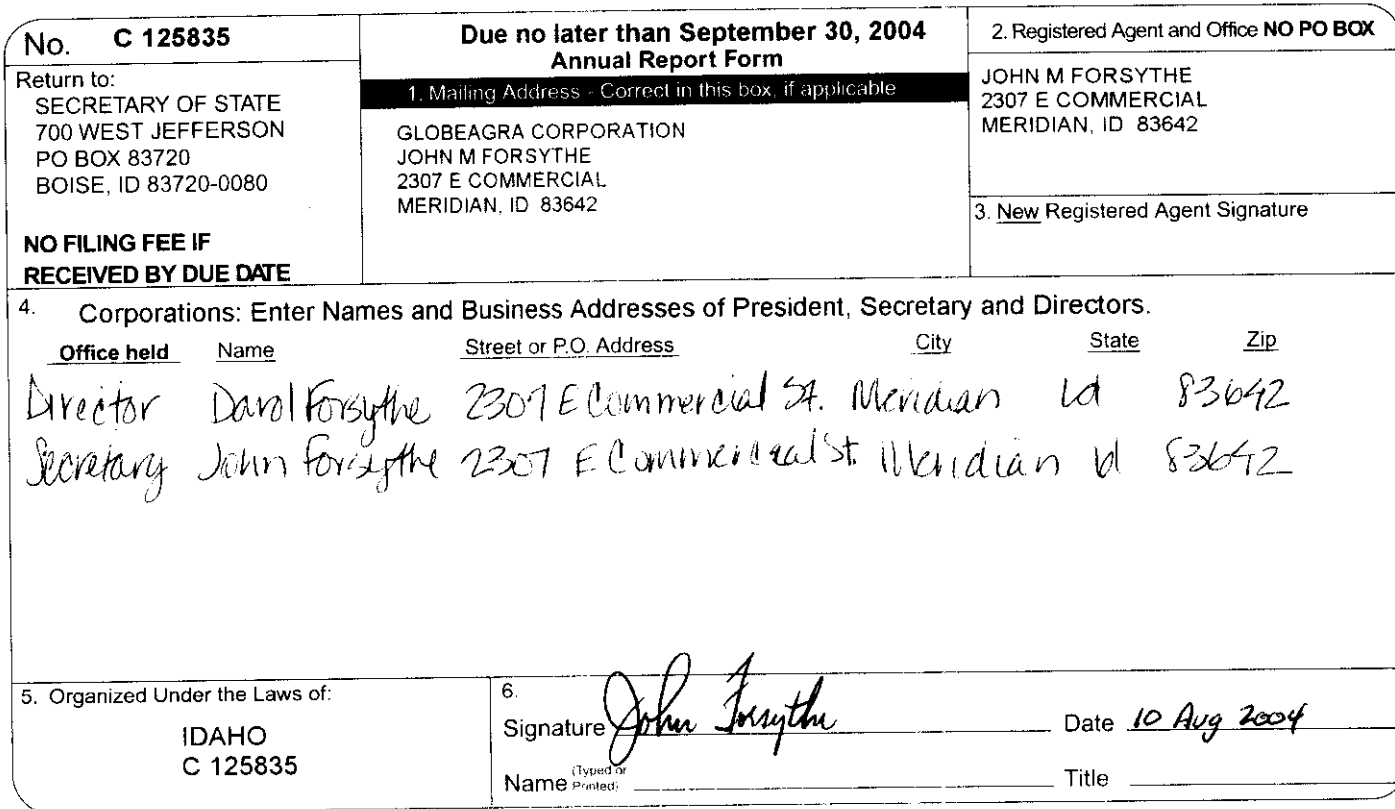 No. C 125835
Return to:
SECRETARY OF STATE
700 WEST JEFFERSON
PO BOX 83720
BOISE, ID 83720-0080
NO FILING FEE IF
RECEIVED BY DUE DATE
Due no later than September 30, 2004
Annual Report Form
1. Mailing Address - Correct in this box, if applicable
GLOBEAGRA CORPORATION
JOHN M FORSYTHE
2307 E COMMERCIAL
MERIDIAN, ID 83642
2. Registered Agent and Office NO PO BOX
JOHN M FORSYTHE
2307 E COMMERCIAL
MERIDIAN, ID 83642
3. New Registered Agent Signature
4. Corporations: Enter Names and Business Addresses of President, Secretary and Directors.
Office held Name Street or P.O. Address City State Zip
Director Darol Forsythe 2307 E Commercial St. Meridian Id 83642
Secretary John Forsythe 2307 E Commercial St. Meridian Id 83642
5. Organized Under the Laws of:
IDAHO
C 125835
6.
Signature John Forsythe Date 10 Aug 2004
Name (Typed or Printed) Title